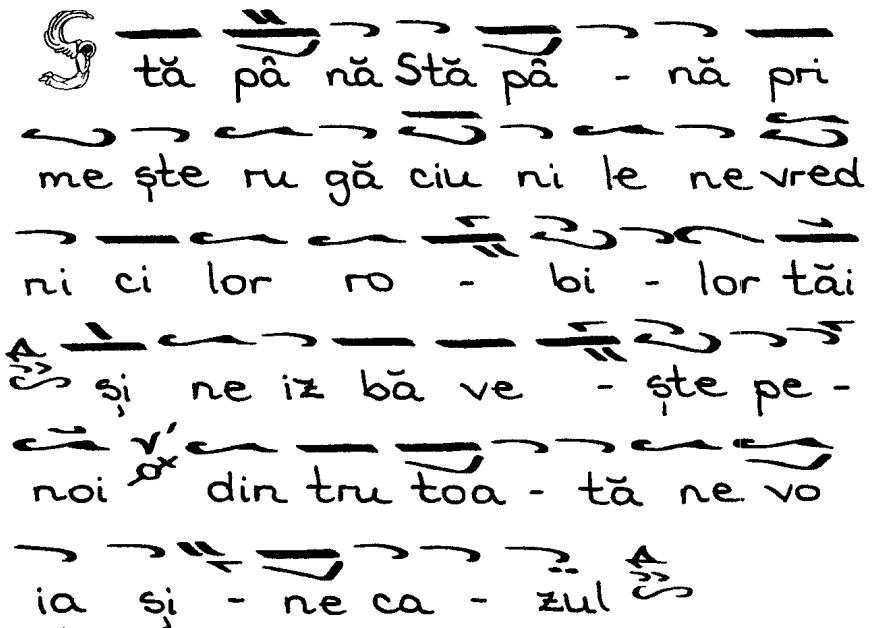 Stă pâ nă Stă pâ - nă pri
me şte ru gă ciu ni le ne vred
ni ci lor ro - bi - lor tăi
şi ne iz bă ve - şte pe -
noi din tru toa - tă ne vo
ia şi - ne ca - zul